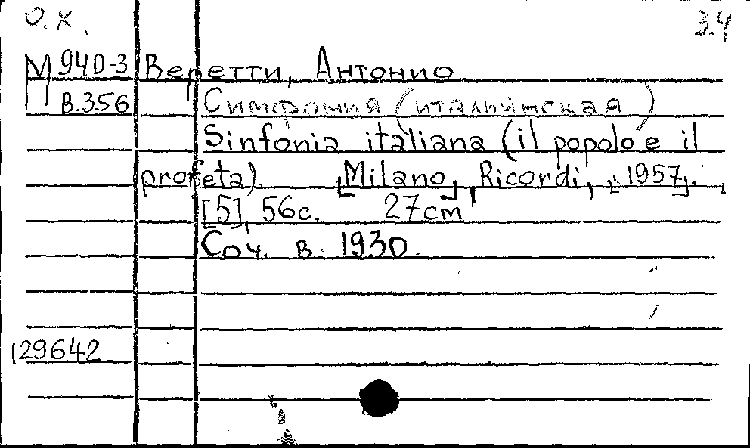 О.Х. 3.4
М 940-3 Веретти, Антонио
В.356 Симфония (итальянская)
Sinfonia italiana (il popolo e il
profeta). [Milano], Ricordi, [1957].
[5], 56с. 27cm
Соч. в 1930.
129642